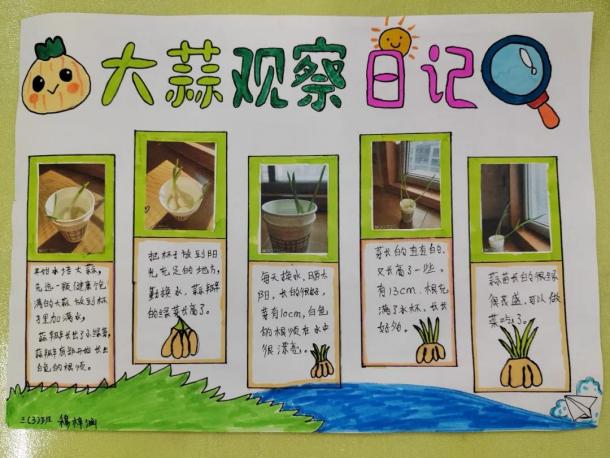 大蒜观察日记
开始水培大蒜,
先选一颗健康饱
满的大蒜 放到杯
子里加满水,
蒜瓣长出了小绿芽,
蒜瓣底部开始长出
白色的根须。
把杯子放到阳
光充足的地方,
勤换水, 蒜瓣
的绿芽长高了。
每天换水, 晒太
阳, 长的很好,
芽有10cm, 白色
的根须在水中
很漂亮。
芽长的直直的,
又长高了一些,
有13cm, 根充
满了水杯, 长长
好的。
蒜苗长的很绿
很茂盛, 可以做
菜吃了。
三(3)班